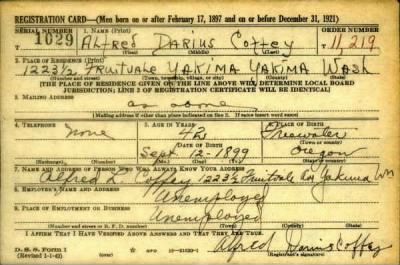 REGISTRATION CARD—(Men born on or after February 17, 1897 and on or before December 31, 1921)
SERIAL NUMBER 1. NAME (Print) ORDER NUMBER
1029 Alfred Darius Coffey 11,219
(First) (Middle) (Last)
2. PLACE OF RESIDENCE (Print)
1223½ Fruitvale Yakima Yakima Wash
(Number and street) (Town, township, village, or city) (County) (State)
[THE PLACE OF RESIDENCE GIVEN ON THE LINE ABOVE WILL DETERMINE LOCAL BOARD
JURISDICTION; LINE 2 OF REGISTRATION CERTIFICATE WILL BE IDENTICAL]
3. MAILING ADDRESS
as above
[Mailing address if other than place indicated on line 2. If same insert word same]
4. TELEPHONE 5. AGE IN YEARS 6. PLACE OF BIRTH
none 42 Freewater
DATE OF BIRTH (Town or county)
Sept. 12-1899 Oregon
(Exchange) (Number) (Mo.) (Day) (Yr.) (State or country)
7. NAME AND ADDRESS OF PERSON WHO WILL ALWAYS KNOW YOUR ADDRESS
Alfred Coffey 1223½ Fruitvale Yakima Wn
8. EMPLOYER'S NAME AND ADDRESS
Unemployed
9. PLACE OF EMPLOYMENT OR BUSINESS
Unemployed
(Number and street or R. F. D. number) (Town) (County) (State)
I AFFIRM THAT I HAVE VERIFIED ABOVE ANSWERS AND THAT THEY ARE TRUE.
D. S. S. Form 1
(Revised 1-1-42) (over) 16—21630-1 Alfred Darius Coffey
(Registrant's signature)